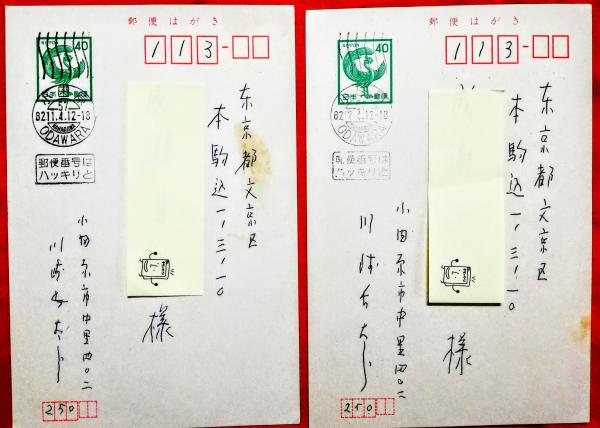 郵便はがき
40
日本郵便
113-
57
82.11.4.12-18
ODAWARA
郵便番号は
ハッキリと
东京都文京区
本駒込一ノ三ノ一〇
様
小田原市中里四〇二
川崎長太郎
250
郵便はがき
40
日本郵便
113-
82
4.12-18
ODAWARA
郵便番号は
ハッキリと
东京都文京区
本駒込一ノ三ノ一〇
様
小田原市中里四〇二
川崎長太郎
250